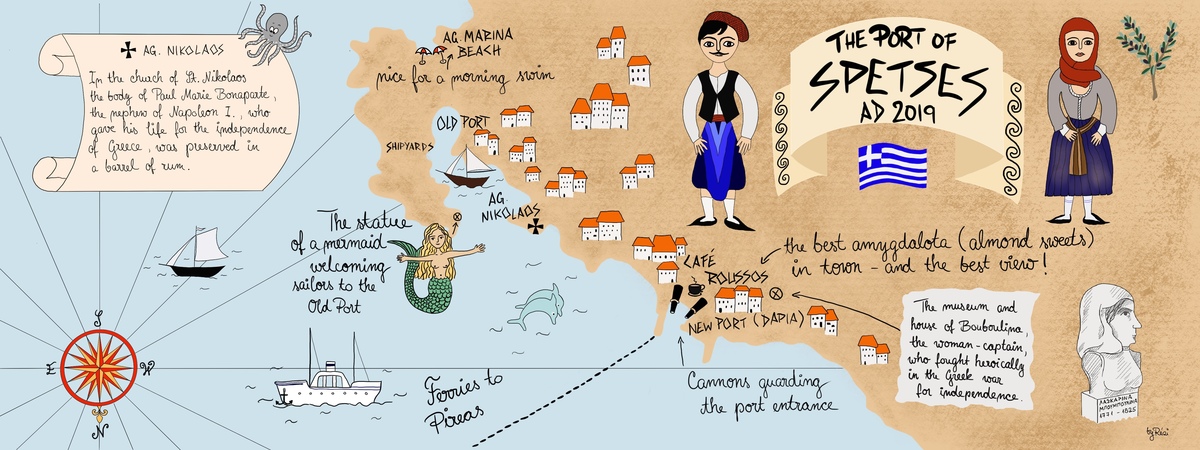 AG. NIKOLAOS
In the church of St. Nikolaos
the body of Paul Marie Bonaparte,
the nephew of Napoleon I., who
gave his life for the independence
of Greece, was preserved in
a barrel of rum.
AG. MARINA
BEACH
nice for a morning swim
OLD PORT
SHIPYARDS
AG.
NIKOLAOS
THE PORT OF
SPETSES
AD 2019
The statue
of a mermaid
welcoming
sailors to the
Old Port
CAFÉ
ROUSSOS
the best amygdalota (almond sweets)
in town - and the best view!
NEW PORT (DAPIA)
The museum and
house of Bouboulina,
the woman-captain,
who fought heroically
in the Greek war
for independence.
ΛΑΣΚΑΡΙΝΑ
ΜΠΟΥΜΠΟΥΛΙΝΑ
1771-1825
Cannons guarding
the port entrance
Ferries to
Pireas
S
E
W
N
by Rési